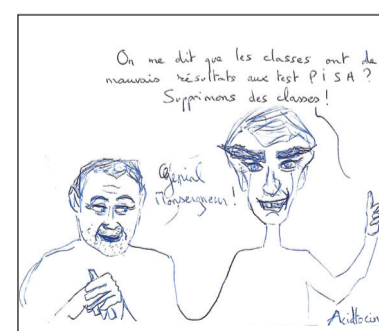 On me dit que les classes ont de
mauvais résultats aux test PISA ?
Supprimons des classes !
Génial
Monseigneur !